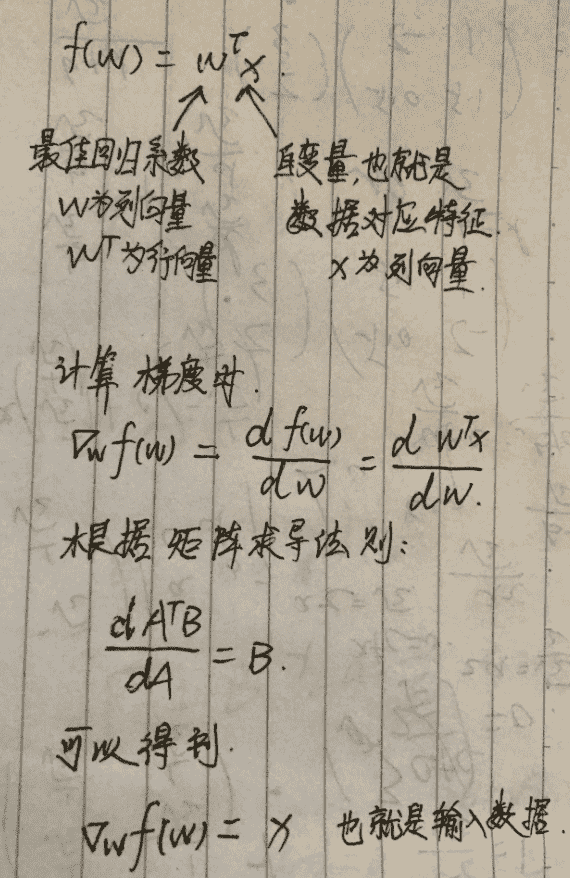 f(w) = wᵀx
最佳回归系数
w为列向量
wᵀ为行向量
自变量,也就是
数据对应特征.
x为列向量.
计算梯度时.
∇w f(w) = d f(w) / dw = d wᵀx / dw.
根据矩阵求导法则:
d AᵀB / dA = B.
可以得到.
∇w f(w) = x 也就是输入数据.